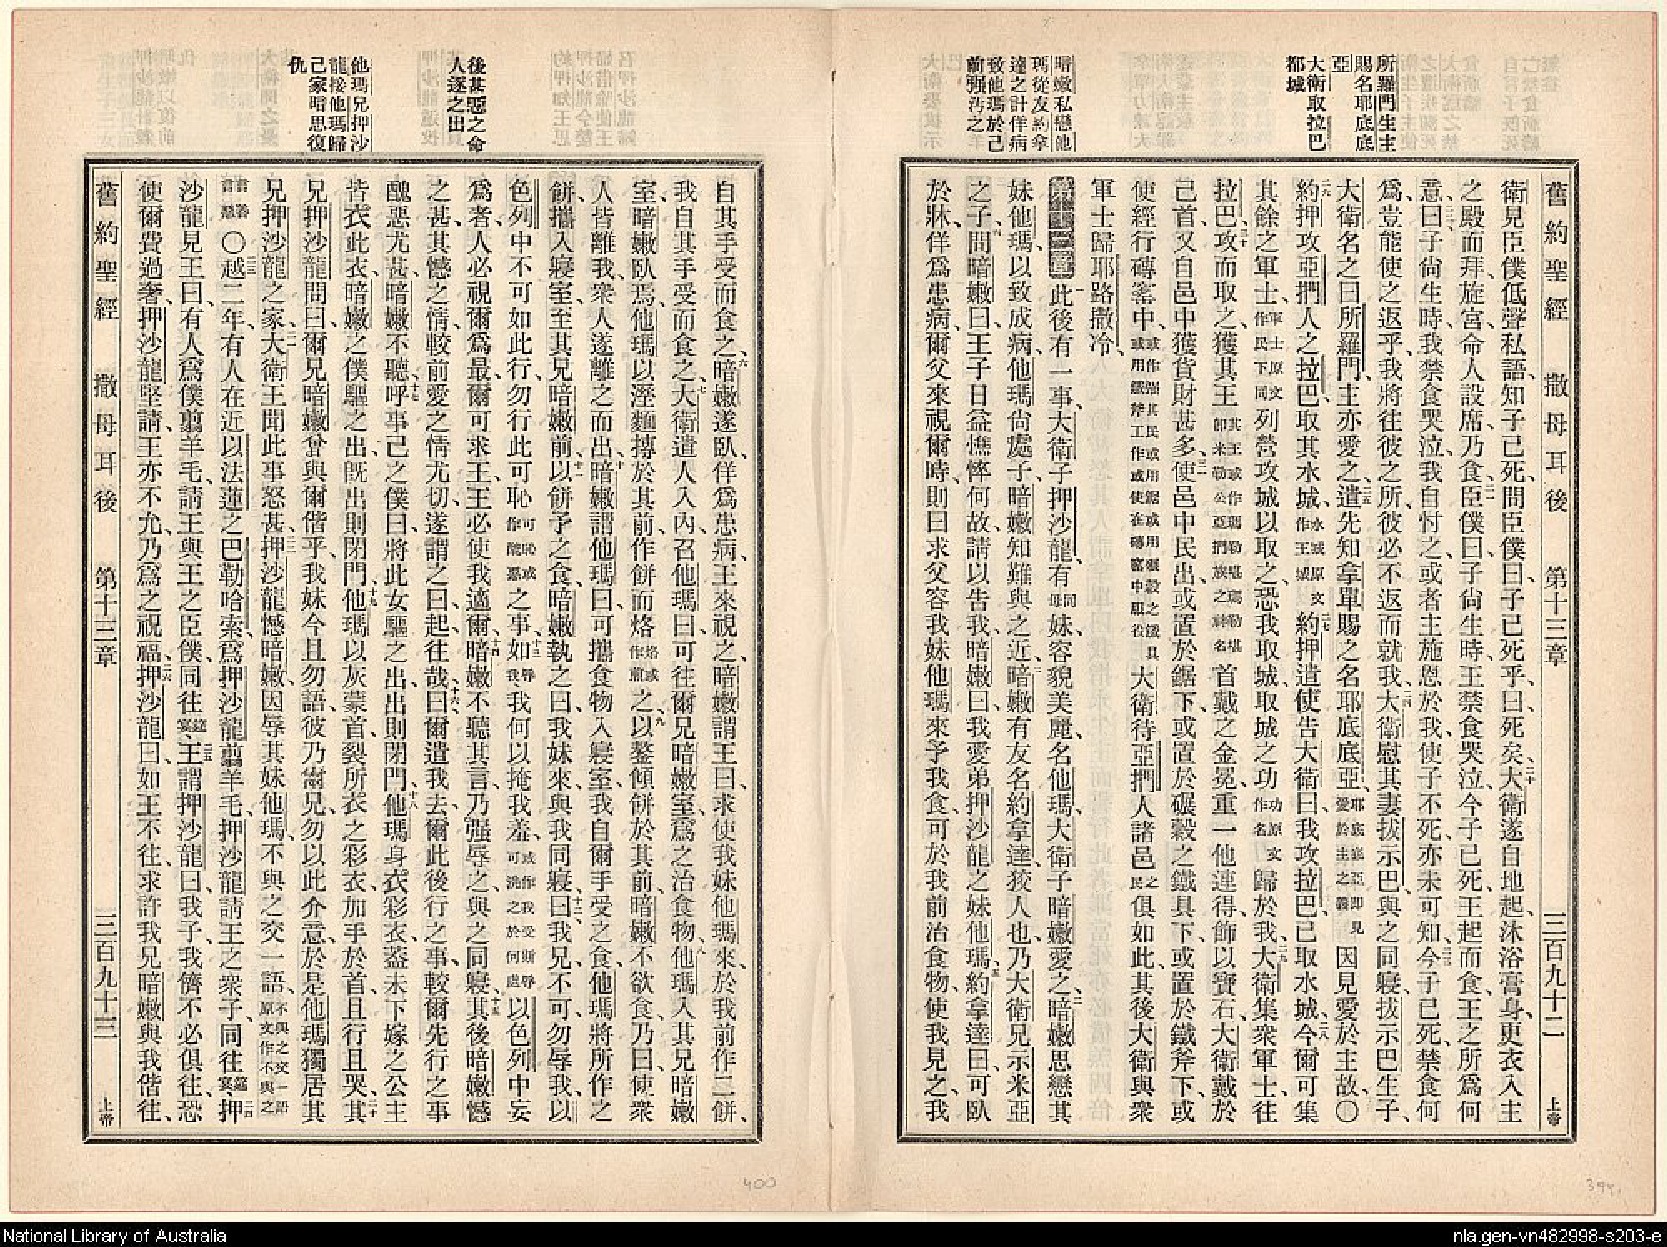 所羅門生主
賜名耶底底
亞
大衛取拉巴
都城
暗嫩私戀他
瑪從友約拿
達之計佯病
致他瑪於己
前強污之
舊約聖經　撒母耳後　第十三章　三百九十二　上帝
衛見臣僕低聲私語、知子已死、問臣僕曰、子已死乎、曰、死矣、二十大衛遂自地起、沐浴膏身、更衣、入主
之殿而拜、旋宮、命人設席、乃食、二一臣僕曰、子尚生時、王禁食哭泣、今子已死、王起而食、王之所爲何
意、二二曰、子尚生時、我禁食哭泣、我自忖之、或者主施恩於我、使子不死、亦未可知、二三今子已死、禁食何
爲、豈能使之返乎、我將往彼之所、彼必不返而就我、二四大衛慰其妻拔示巴、與之同寢、拔示巴生子、
大衛名之曰所羅門、主亦愛之、二五遣先知拿單賜之名耶底底亞、耶底底亞卽見愛於主之義因見愛於主故、〇
二六約押攻亞捫人之拉巴、取其水城、水城原文作王城二七約押遣使告大衛曰、我攻拉巴、已取水城、二八今爾可集
其餘之軍士、軍士原文作民下同列營攻城以取之、恐我取城、取城之功功原文作名歸於我、二九大衛集衆軍士、往
拉巴、攻而取之、三十獲其王其王或作瑪勒堪瑪勒堪卽米勒公亞捫族之神名首戴之金冕、重一他連得、飾以寶石、大衛戴於
己首、又自邑中獲貨財甚多、三一使邑中民出、或置於鋸下、或置於碾穀之鐵具下、或置於鐵斧下、或
使經行磚窰中、或作謝其民或用鋸或用碾穀之鐵具或用鐵斧工作或使在磚窰中服役大衛待亞捫人諸邑之民俱如此、其後大衛與衆
軍士歸耶路撒冷、
第十三章一此後有一事、大衛子押沙龍、有同母妹、容貌美麗、名他瑪、大衛子暗嫩愛之、二暗嫩思戀其
妹他瑪、以致成病、他瑪尚處子、暗嫩知難與之近、三暗嫩有友、名約拿達、狡人也、乃大衛兄示米亞
之子、四問暗嫩曰、王子日益憔悴何故、請以告我、暗嫩曰、我愛弟押沙龍之妹他瑪、五約拿達曰、可臥
於牀、佯爲患病、爾父來視爾時、則曰、求父容我妹他瑪來、予我食、可於我前治食物、使我見之、我
後某惡之命
人逐之出
他瑪兄押沙
龍接他瑪歸
己家暗思復
仇
自其手受而食之、六暗嫩遂臥、佯爲患病、王來視之、暗嫩謂王曰、求使我妹他瑪來、於我前作二餅、
我自其手受而食之、七大衛遣人入內、召他瑪曰、可往爾兄暗嫩室、爲之治食物、八他瑪入其兄暗嫩
室、暗嫩臥焉、他瑪以溼麵摶於其前、作餅而烙烙或作煎之、九以鏊傾餅於其前、暗嫩不欲食、乃曰、使衆
人皆離我、衆人遂離之而出、十暗嫩謂他瑪曰、可攜食物入寢室、我自爾手受之食、他瑪將所作之
餅、攜入寢室、至其兄暗嫩前、十一以餅予之食、暗嫩執之曰、我妹來、與我同寢、十二曰、我兄不可、勿辱我、以
色列中不可如此行、勿行此可恥可恥或作醜惡之事、十三如辱我、我何以掩我羞、或作我受斯辱可洗之於何處以色列中妄
爲者、人必視爾爲最、爾可求王、王必使我適爾、十四暗嫩不聽其言、乃强辱之、與之同寢、十五其後暗嫩憾
之甚、其憾之情、較前愛之之情尤切、遂謂之曰、起往哉、十六曰、爾遣我去、爾此後行之事、較爾先行之事、
醜惡尤甚、暗嫩不聽、十七呼事己之僕曰、將此女驅之出、出則閉門、十八他瑪身衣彩衣、蓋未下嫁之公主
皆衣此衣、暗嫩之僕驅之出、旣出則閉門、十九他瑪以灰蒙首、裂所衣之彩衣、加手於首、且行且哭、二十其
兄押沙龍問曰、爾兄暗嫩曾與爾偕乎、我妹今且勿語、彼乃爾兄、勿以此介意、於是他瑪獨居其
兄押沙龍之家、二一大衛王聞此事、怒甚、二二押沙龍憾暗嫩、因辱其妹他瑪、不與之交一語、不與之交一語原文作不與之
言善言惡〇二三越二年、有人在近以法蓮之巴勒哈索、爲押沙龍翦羊毛、押沙龍請王之衆子同往、筵宴二四押
沙龍見王曰、有人爲僕翦羊毛、請王與王之臣僕同往、筵宴二五王謂押沙龍曰、我子、我儕不必俱往、恐
使爾費過奢、押沙龍堅請、王亦不允、乃爲之祝福、二六押沙龍曰、如王不往、求許我兄暗嫩與我偕往、
舊約聖經　撒母耳後　第十三章　三百九十三　上帝
400
399
National Library of Australia
nla.gen-vn482998-s203-e